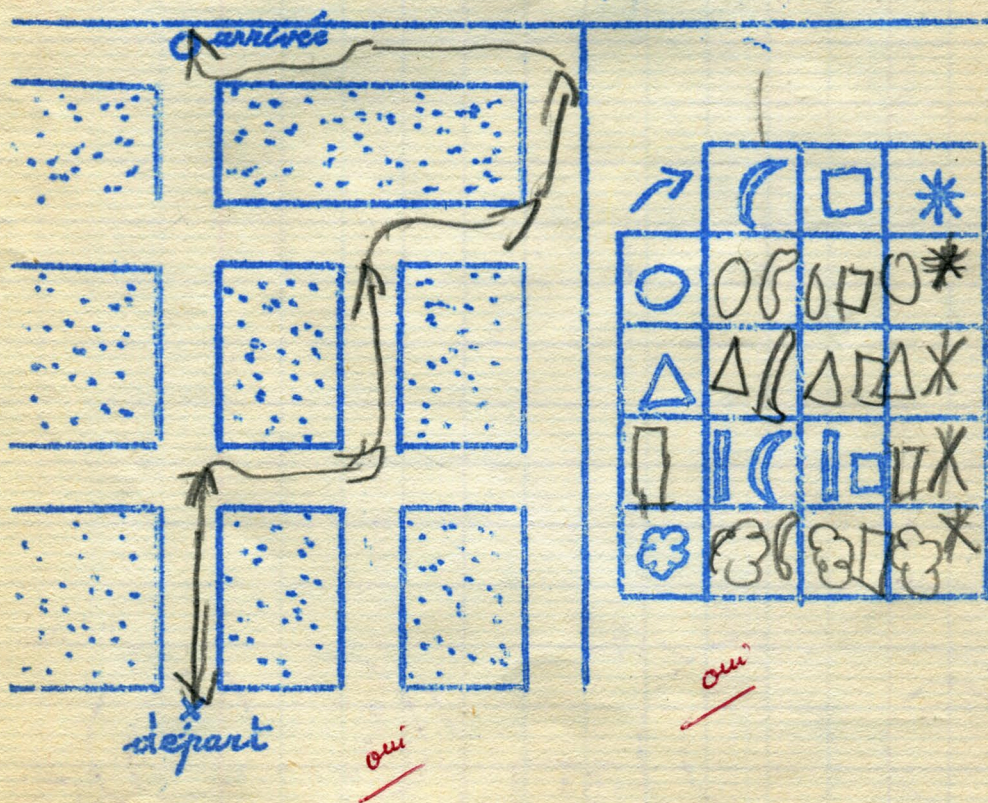 arrivée
départ
oui
oui